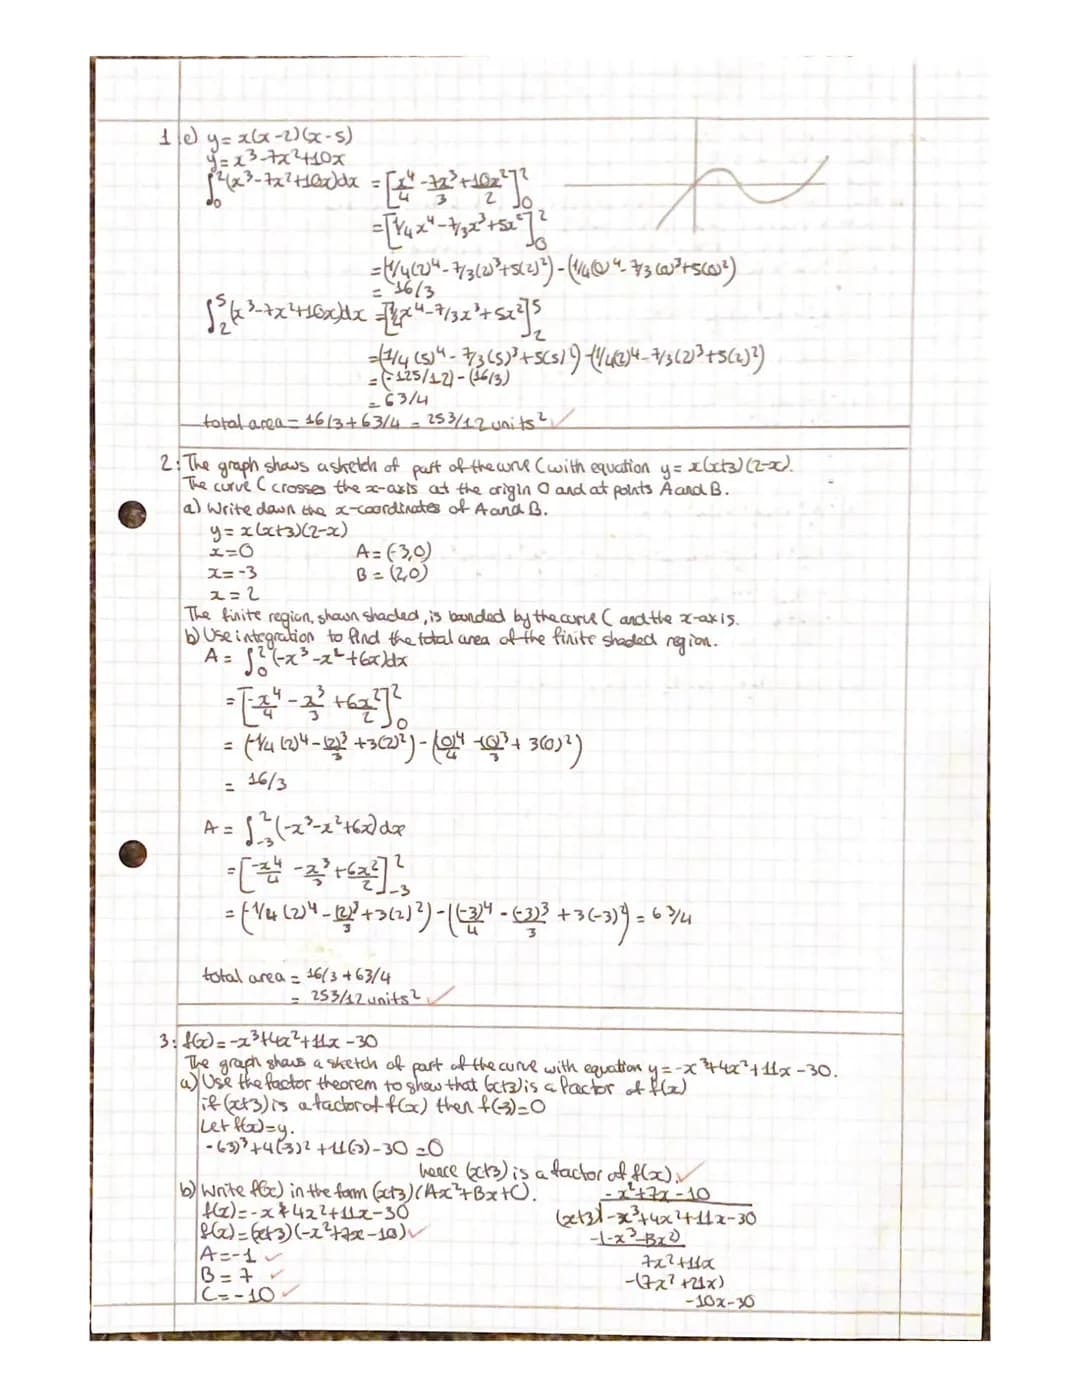 1 e) y = x(x-2)(x-5)
y = x³-7x²+10x
∫₀²(x³-7x²+10x)dx = [x⁴/4 - 7x³/3 + 10x²/2]₀²
= [1/4x⁴ - 7/3x³ + 5x²]₀²
= (1/4(2)⁴ - 7/3(2)³ + 5(2)²) - (1/4(0)⁴ - 7/3(0)³ + 5(0)²)
= 16/3
∫₂⁵(x³-7x²+10x)dx = [1/4x⁴ - 7/3x³ + 5x²]₂⁵
= (1/4(5)⁴ - 7/3(5)³ + 5(5)²) - (1/4(2)⁴ - 7/3(2)³ + 5(2)²)
= (-125/12) - (16/3)
= 63/4
total area = 16/3 + 63/4 = 253/12 units² ✓
2: The graph shows a sketch of part of the curve C with equation y = x(x+3)(2-x).
The curve C crosses the x-axis at the origin O and at points A and B.
a) Write down the x-coordinates of A and B.
y = x(x+3)(2-x)
x = 0 A = (-3,0)
x = -3 B = (2,0)
x = 2
The finite region, shown shaded, is bounded by the curve C and the x-axis.
b) Use integration to find the total area of the finite shaded region.
A = ∫₀²(-x³-x²+6x)dx
= [-x⁴/4 - x³/3 + 6x²/2]₀²
= (-1/4(2)⁴ - (2)³/3 + 3(2)²) - ((0)⁴/4 - (0)³/3 + 3(0)²)
= 16/3
A = ∫₋₃²(-x³-x²+6x)dx
= [-x⁴/4 - x³/3 + 6x²/2]₋₃²
= (-1/4(2)⁴ - (2)³/3 + 3(2)²) - ((-3)⁴/4 - (-3)³/3 + 3(-3)²) = 63/4
total area = 16/3 + 63/4
= 253/12 units² ✓
3: f(x) = -x³+4x²+11x-30
The graph shows a sketch of part of the curve with equation y = -x³+4x²+11x-30.
a) Use the factor theorem to show that (x+3) is a factor of f(x)
if (x+3) is a factor of f(x) then f(-3)=0
Let f(x)=y.
-(-3)³+4(-3)²+11(-3)-30 = 0
hence (x+3) is a factor of f(x). ✓
b) Write f(x) in the form (x+3)(Ax²+Bx+C).
f(x) = -x³+4x²+11x-30
f(x) = (x+3)(-x²+7x-10) ✓
A = -1 ✓
B = 7 ✓
C = -10 ✓
-x²+7x-10
(x+3) -x³+4x²+11x-30
-(-x³-3x²)
7x²+11x
-(7x²+21x)
-10x-30